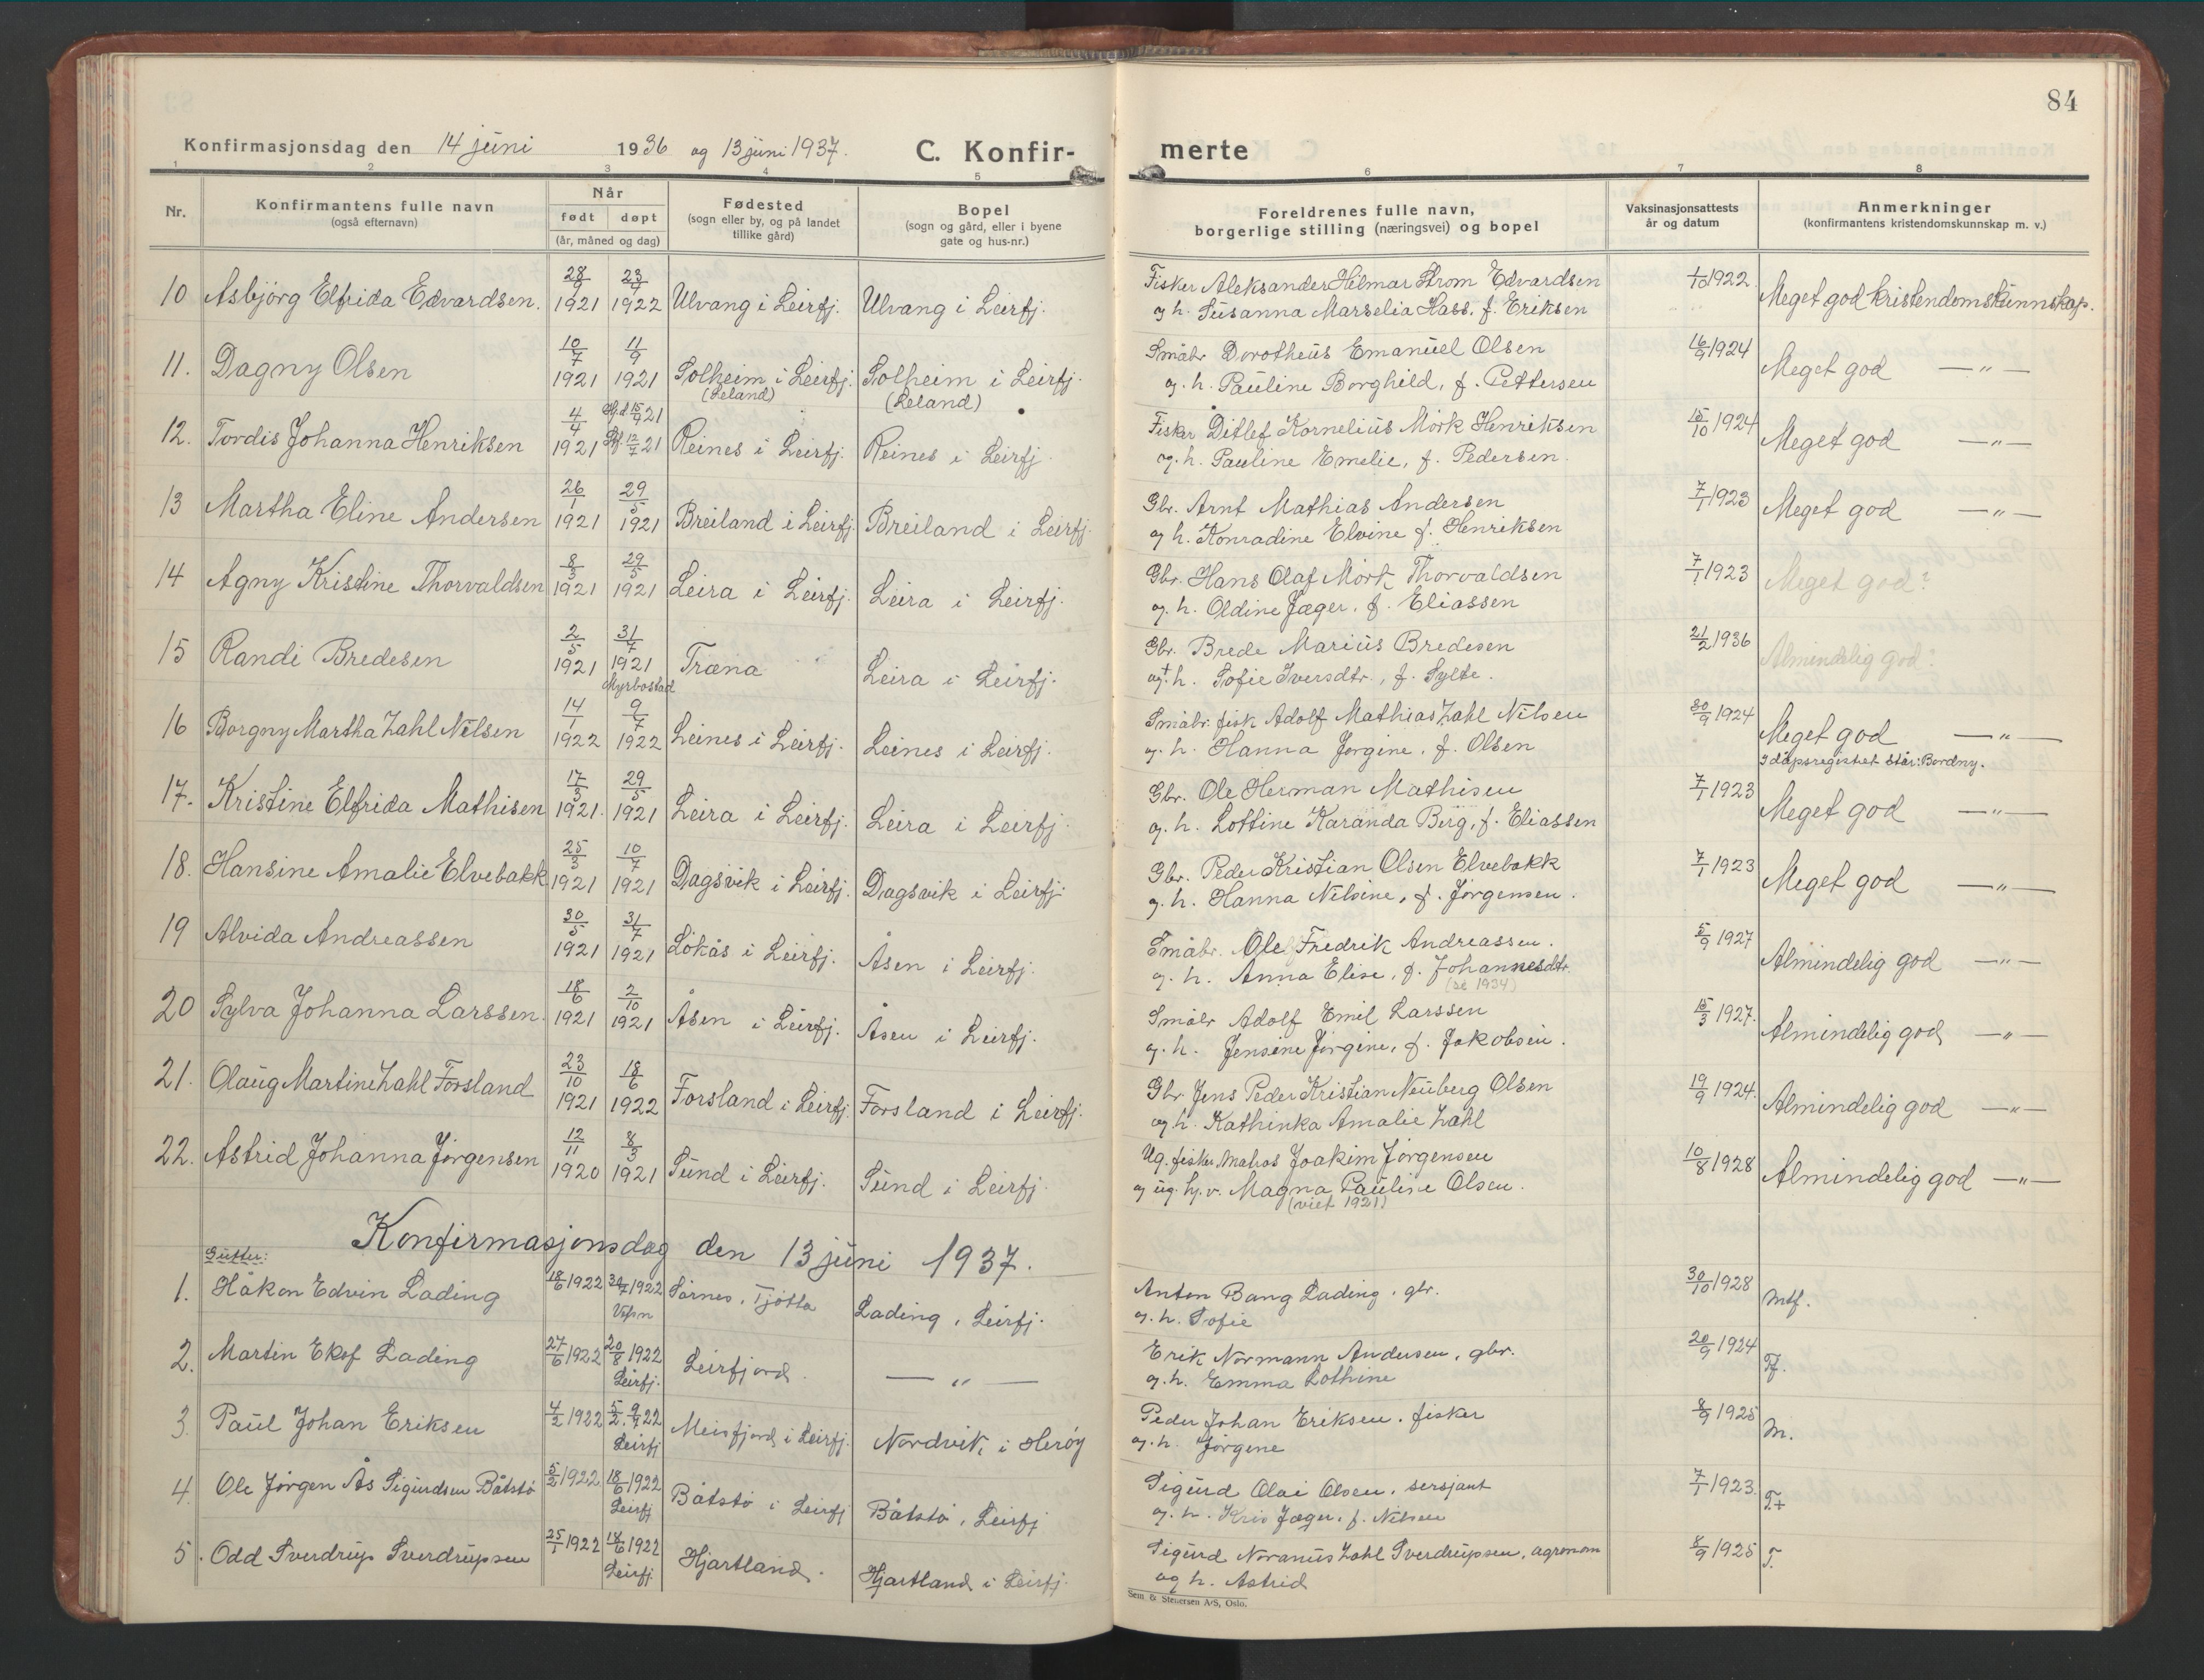 84
Konfirmasjonsdag den 14 juni 1936 og 13 juni 1937. C. Konfir- merte
1 2 3 4 5 6 7 8
Nr. Konfirmantens fulle navn (også efternavn) Når født døpt (år, måned og dag) Fødested (sogn eller by, og på landet tillike gård) Bopel (sogn og gård, eller i byene gate og hus-nr.) Foreldrenes fulle navn, borgerlige stilling (næringsvei) og bopel Vaksinasjonsattests år og datum Anmerkninger (konfirmantens kristendomskunnskap m. v.)
10 Asbjörg Elfrida Edvardsen. 28/9 1921 23/4 1922 Ulvang i Leirfj. Ulvang i Leirfj. Fisker Aleksander Hilmar Strom Edvardsen 1/10 1922 Meget god kristendomskunnskap.
og h. Susanna Marselia Hass, f. Eriksen
11. Dagny Olsen 10/7 1921 11/9 1921 Solheim i Leirfj. (Leland) Solheim i Leirfj. (Leland) Småbr Dorotheus Emanuel Olsen 16/9 1924 Meget god —〃—
og. h. Pauline Borghild, f. Pettersen
12. Tordis Johanna Henriksen 4/4 1921 Hj.d 15/4 21 12/7 21 Reines i Leirfj. Reines i Leirfj. Fisker Ditlef Kornelius Mörk Henriksen 15/10 1924 Meget god —〃—
og. h. Pauline Emelie, f. Pedersen.
13 Martha Eline Andersen 26/1 1921 29/5 1921 Breiland i Leirfj Breiland i Leirfj. Gbr. Arnt Mathias Andersen 7/1 1923 Meget god —〃—
og h. Konradine Elvine f. Henriksen
14 Agny Kristine Thorvaldsen 8/3 1921 29/5 1921 Leira i Leirfj. Leira i Leirfj. Gbr. Hans Olaf Mörk Thorvaldsen 7/1 1923 Meget god?
og. h. Oldine Jæger, f. Eliassen
15 Randi Bredesen 2/5 1921 31/7 1921 Myrbostad Træna Leira i Leirfj. Gbr. Brede Marius Bredesen 21/2 1936 Almindelig god?
og † h. Sofie Iversdtr., f. Sylte.
16 Borgny Martha Zahl Nilsen 14/1 1922 9/7 1922 Leines i Leirfj. Leines i Leirfj. Småbr. fisk Adolf Mathias Zahl Nilsen 30/9 1924 Meget god —〃—
og. h. Hanna Jørgine, f. Olsen I dåpsregistret står: Bordny.
17. Kristine Elfrida Mathisen 17/3 1921. 29/5 1921 Leira i Leirfj. Leira i Leirfj. Gbr. Ole Herman Mathisen 7/1 1923 Meget god —〃—
og. h. Lottine Karanda Berg, f. Eliassen
18. Hansine Amalie Elvebakk 25/3 1921 10/7 1921 Dagsvik i Leirfj. Dagsvik i Leirfj. Gbr. Peder Kristian Olsen Elvebakk 7/1 1923 Meget god —〃—
og. h. Hanna Nilsine, f. Jørgensen.
19 Alvida Andreassen 30/5 1921 31/7 1921 Lökås i Leirfj. Åsen i Leirfj. Småbr. Ole Fredrik Andreassen. 5/9 1927 Almindelig god —〃—
og. h. Anna Elise, f. Johannesdtr. (se 1934)
20 Sylva Johanna Larssen. 18/6 1921 2/10 1921 Åsen i Leirfj. Åsen i Leirfj. Småbr Adolf Emil Larssen 15/3 1927. Almindelig god —〃—
og. h. Jensine Jörgine, f. Jakobsen.
21. Olaug Martine Zahl Forsland 23/10 1921 18/6 1922 Forsland i Leirfj. Forsland i Leirfj. Gbr Jens Peder Kristian Neuberg Olsen 19/9 1924. Almindelig god —〃—
og h. Kathinka Amalie Zahl
22. Astrid Johanna Jörgensen 12/11 1920 8/3 1921 Sund i Leirfj. Sund i Leirfj. Ug. fisker, matros Joakim Jörgensen 10/8 1928 Almindelig god —〃—
og ug. hj. v. Magna Pauline Olsen. (viet 1921)
Konfirmasjonsdag den 13 juni 1937.
Gutter:
1. Håkon Edvin Lading 18/6 1922 30/7 1922 Vefsn Sörnes, Tjötta Lading, Leirfj. Anton Bang Lading, gbr. 30/10 1928 Mtf.
og. h. Sofie
2. Martin Ekof Lading 27/6 1922 20/8 1922 Leirfj. Leirfjord. —〃— Erik Normann Andersen, gbr. 20/9 1924 Tf.
og. h. Emma Lothine
3. Paul Johan Eriksen 4/2 1922 5/2. 9/7 22 Leirfj Meisfjord i Leirfj. Nordvik i Heröy Peder Johan Eriksen. fisker 8/9 1925 M.
og. h. Jörgene
4. Ole Jörgen Ås Sigurdsen Båtstö 5/2 1922 18/6 1922 Leirfj Båtstö i Leirfj Båtstö, Leirfj Sigurd Olai Olsen. sersjant 7/1 1923. T+
og. h. Jæger, f. Nilsen
5. Odd Sverdrup Sverdrupsen 25/1 1922 18/6 1922 Leirfj. Hjartland. Hjartland i Leirfj. Sigurd Noranus Zahl Sverdrupsen, agronom 8/9 1925 T.
og h. Astrid
Sem & Stenersen A/S, Oslo.